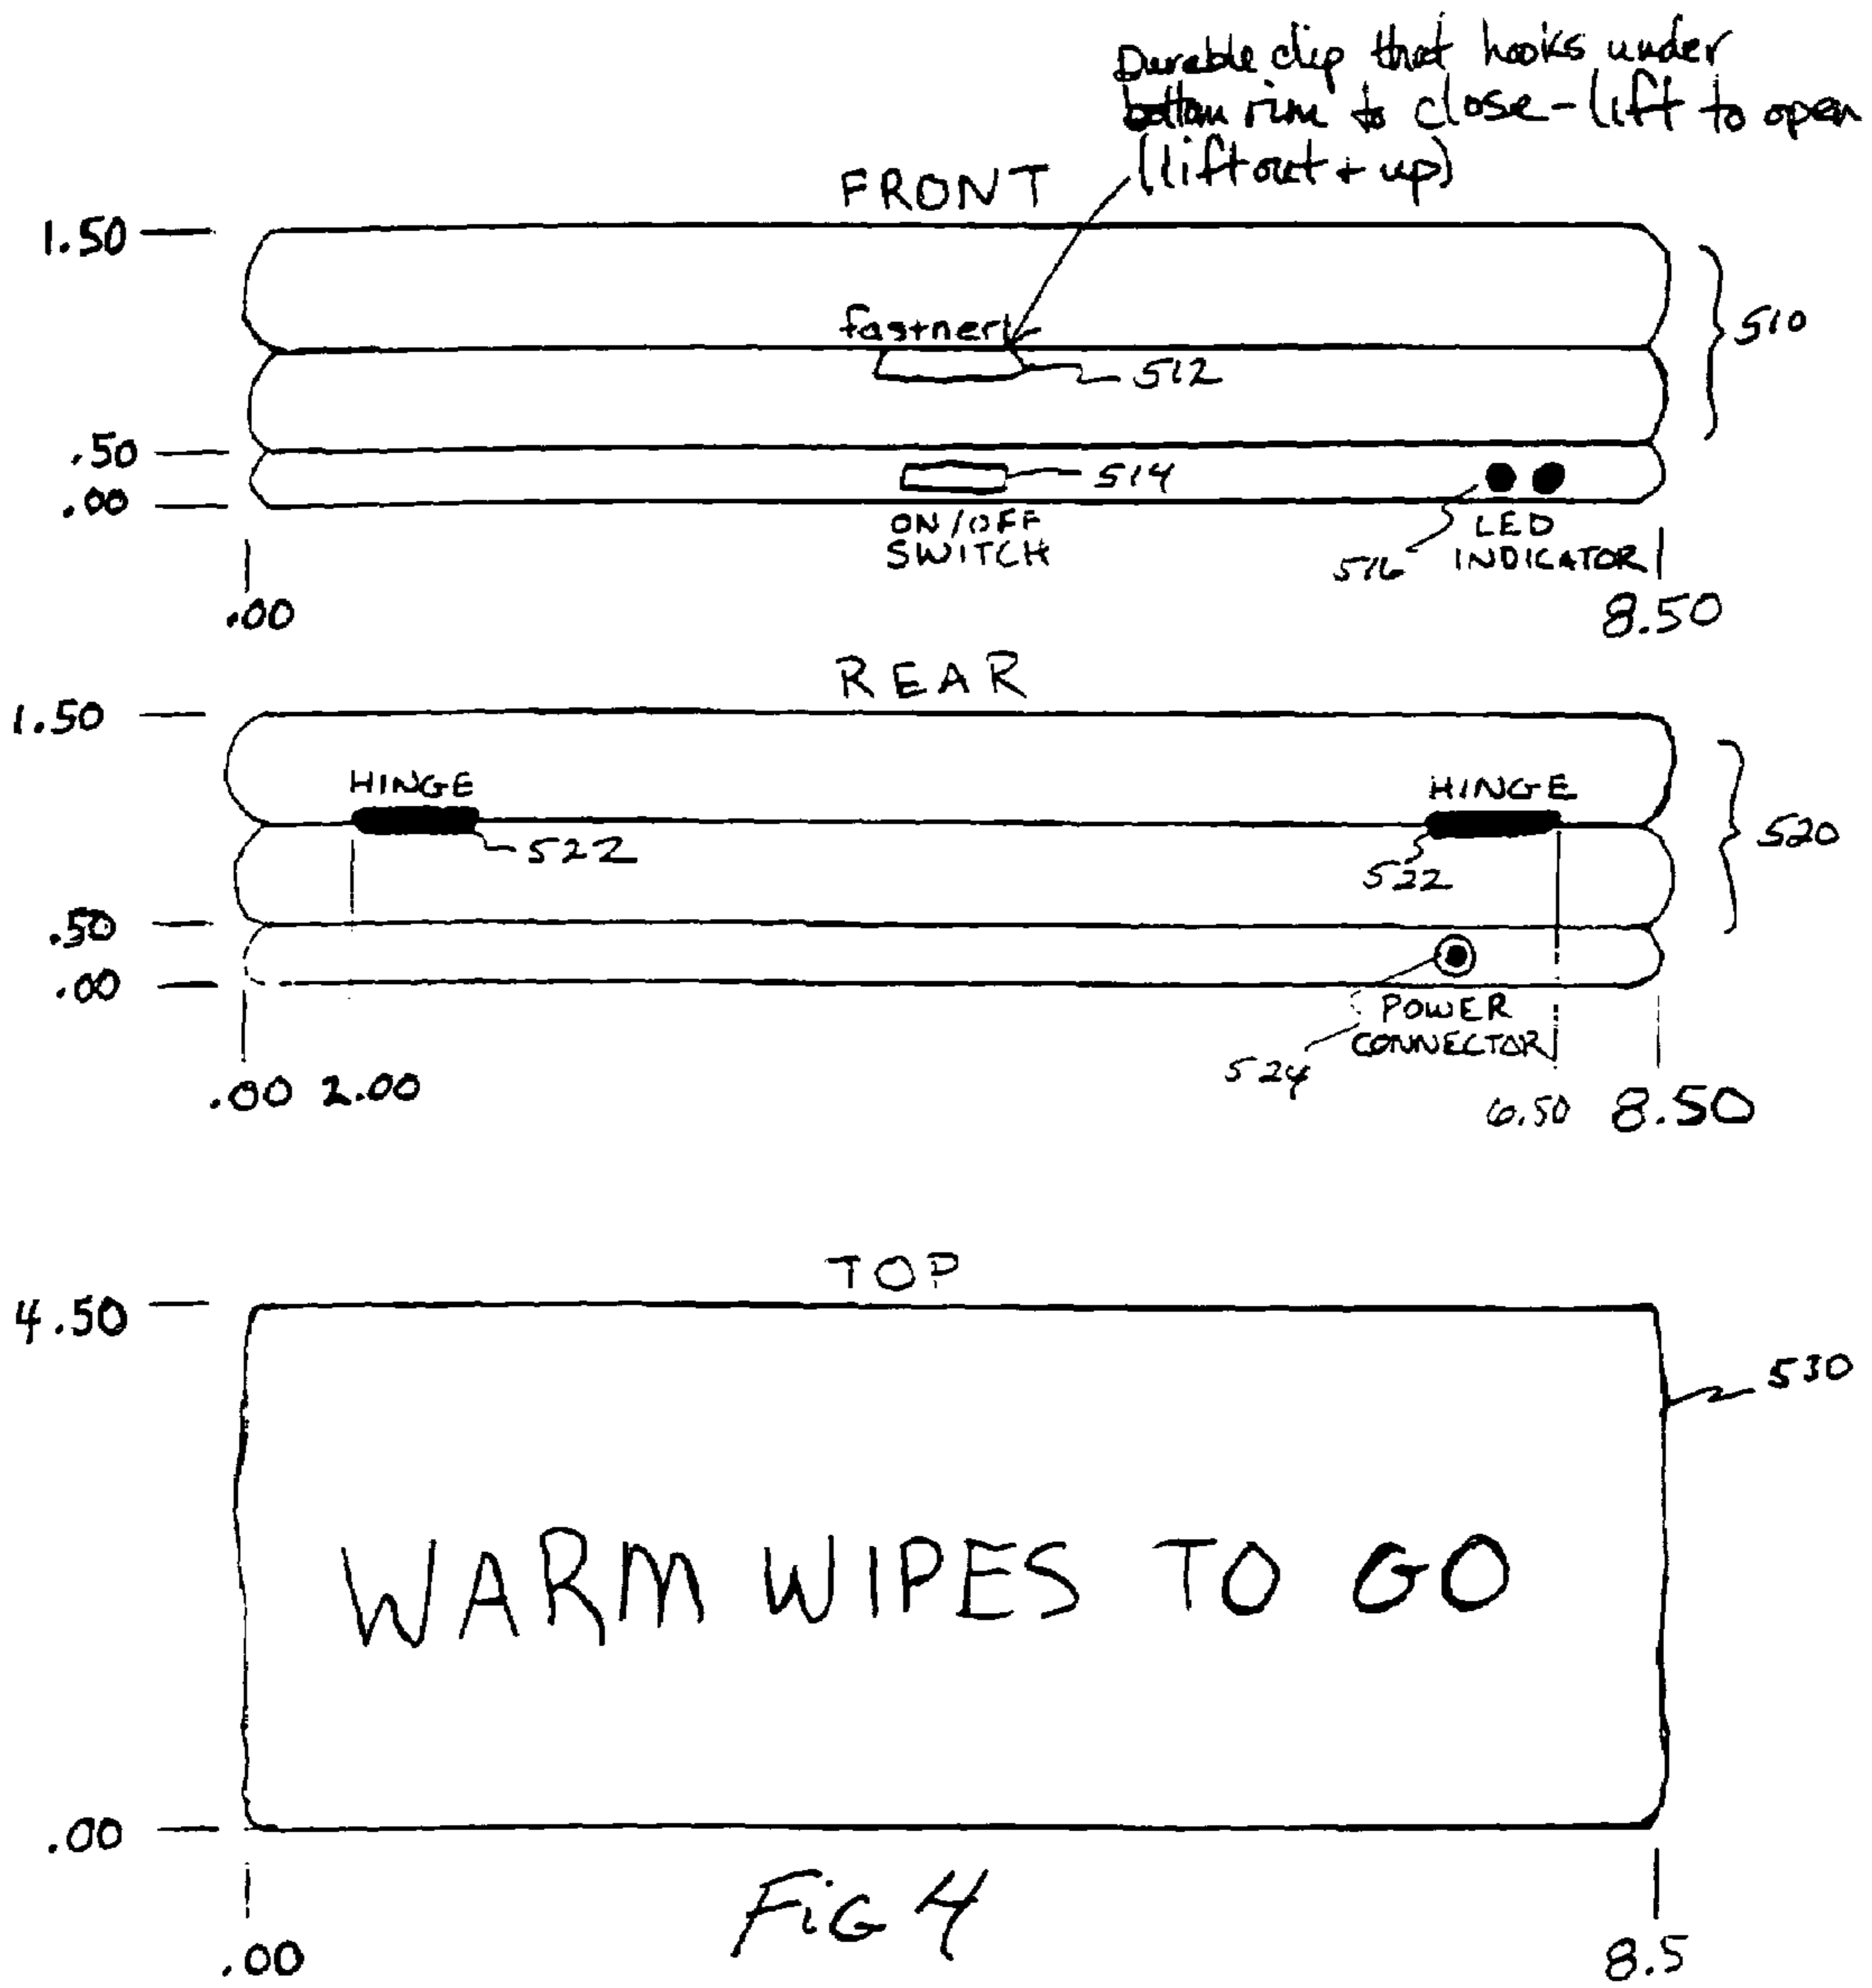 Durable clip that hooks under
bottom rim to close - lift to open
(lift out + up)
FRONT
1.50
fastner
510
512
.50
514
.00
ON/OFF
SWITCH
516
LED
INDICATOR
.00
8.50
REAR
1.50
HINGE
HINGE
522
522
520
.50
.00
POWER
CONNECTOR
524
.00 2.00
6.50 8.50
TOP
4.50
530
WARM WIPES TO GO
.00
Fig 4
.00
8.5